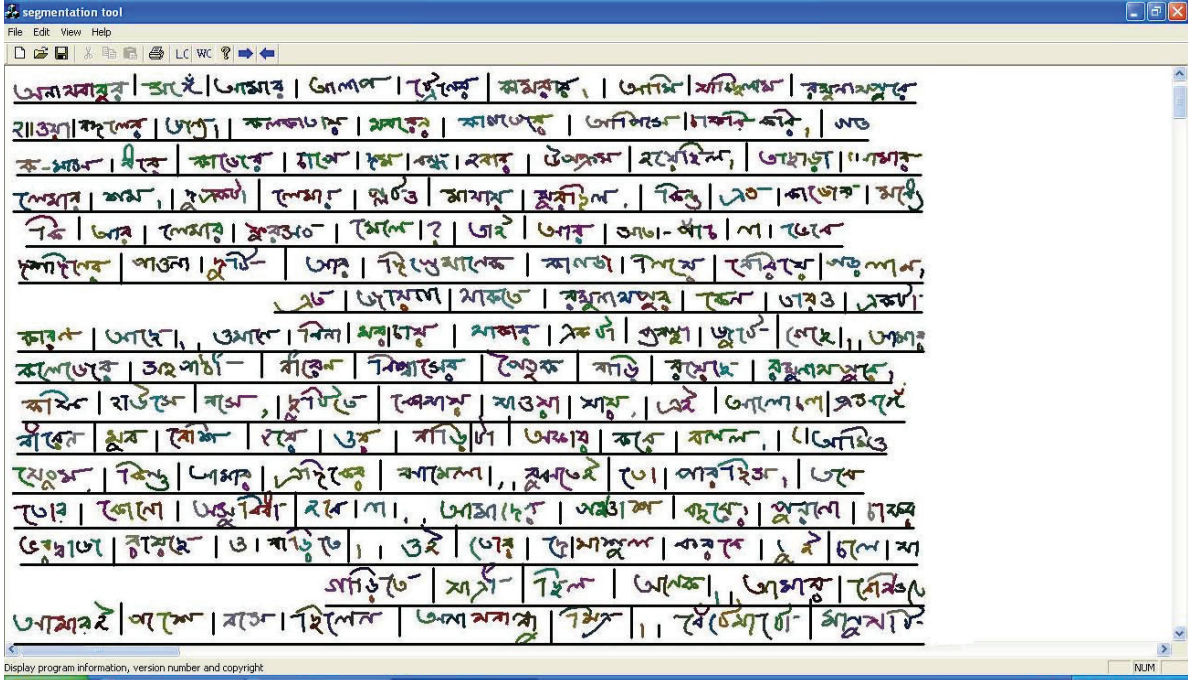 segmentation tool
File Edit View Help
LC WC
অনাথবাবুর সঙ্গে আমার আলাপ ট্রেনের কামরায়, আমি যাচ্ছিলাম রঘুনাথপুরে
হাওয়া বদলের জন্য, কলকাতায় খবরের কাগজের আপিসে চাকরি করি, গত
ক-মাস ধরে কাজের চাপে দম বন্ধ হবার উপক্রম হয়েছিল, তাছাড়া আমার
লেখার শখ, দু একটা লেখার প্লটও মাথায় ঘুরছিল, কিন্তু এত কাজের মধ্যে
কি আর লেখার ফুরসত মেলে ? তাই আর সাত-পাঁচ না ভেবে
দশদিনের পাওনা ছুটি আর দিস্তেখানেক কাগজ নিয়ে বেরিয়ে পড়লাম,
এত জায়গা থাকতে রঘুনাথপুর কেন তারও একটা
কারণ আছে, ওখানে বিনা খরচায় থাকার একটা ব্যবস্থা জুটে গেছে, আমার
কলেজের সহপাঠী বীরেন বিশ্বাসের পৈতৃক বাড়ি রয়েছে রঘুনাথপুরে,
কফি হাউসে বসে, ছুটিতে কোথায় যাওয়া যায়, এই আলোচনা প্রসঙ্গে
বীরেন খুব বেশি হয়ে ওর বাড়িটা অফার করে বলল, আমিও
যেতুম, কিন্তু আমার এদিকের ঝামেলা, বুঝতেই তো পারছিস, তবে
তোর কোনো অসুবিধা হবে না, আমাদের পঞ্চাশ বছরের পুরনো চাকর
ভরদ্বাজ রয়েছে ও বাড়িতে, ওই তোর দেখাশুনা করবে, তুই চলে যা
গাড়িতে যাত্রী ছিল অনেক, আমার বেঞ্চিতে
আমারই পাশে বসে ছিলেন অনাথবাবু মিত্র, বেঁটেখাটো মানুষটি
Display program information, version number and copyright
NUM